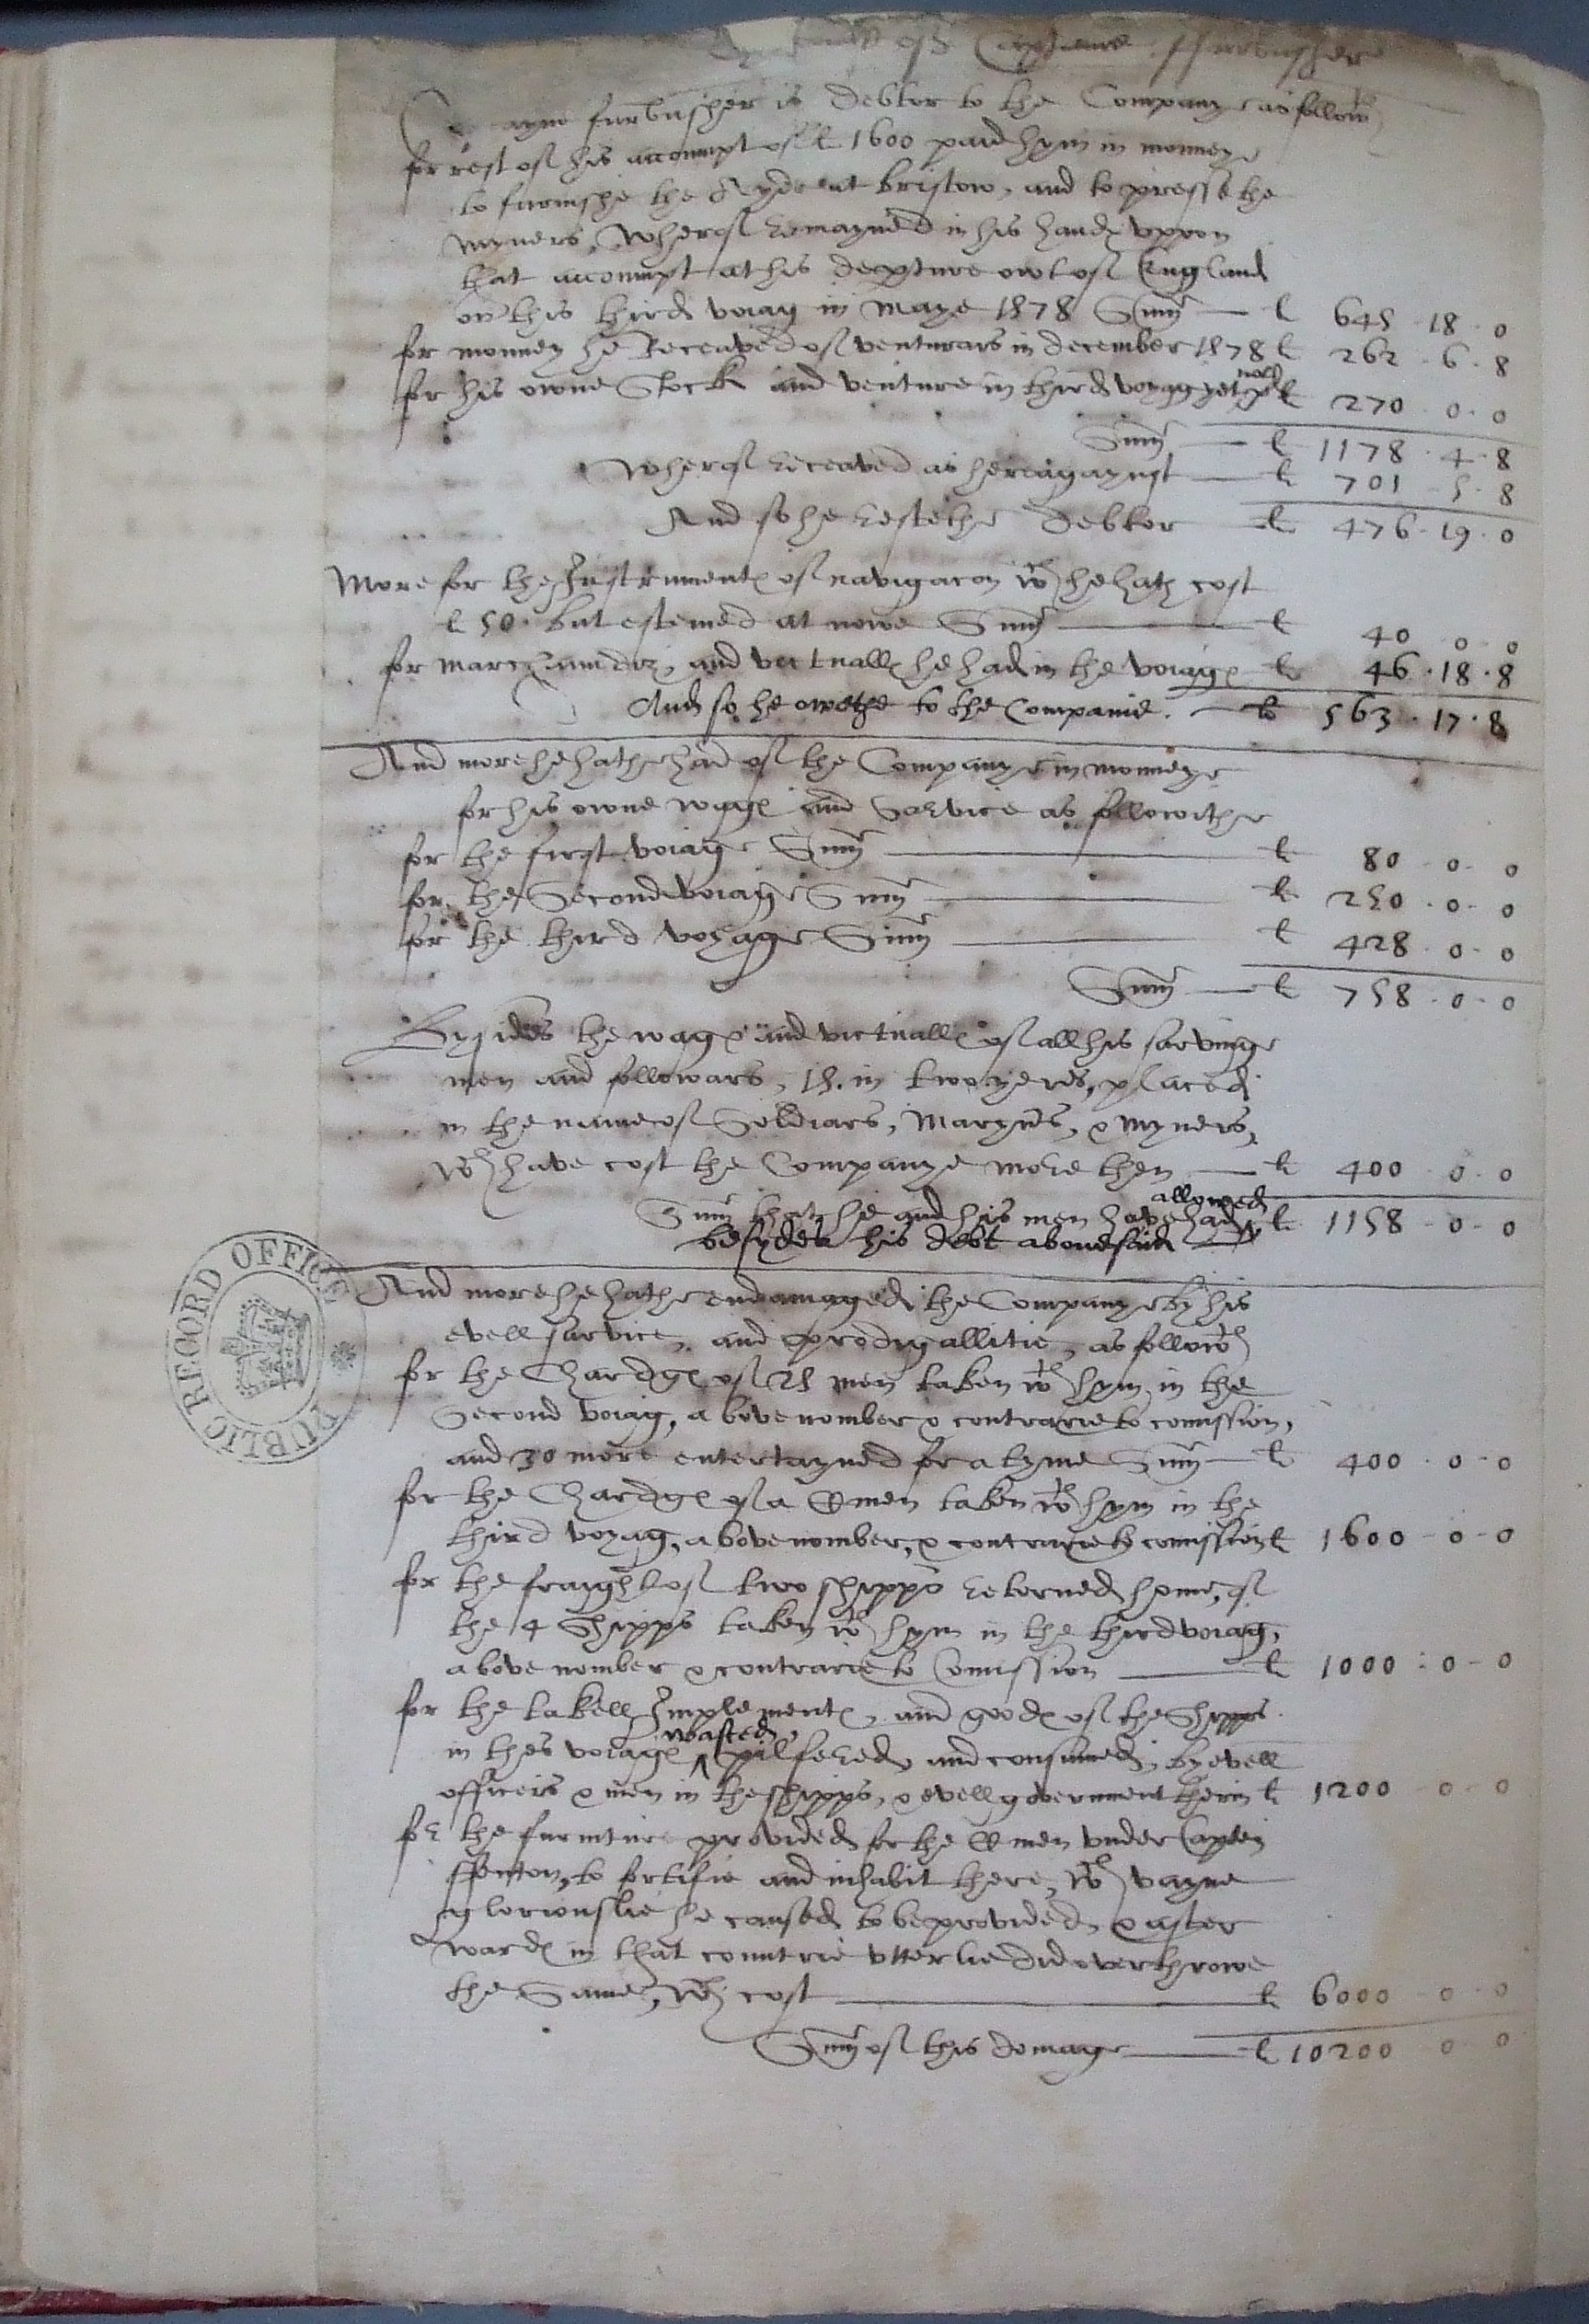 of Captaine ffurbusher
Captayne furbusher is debtor to the Companye as followth
for rest of his accompt of £ 1600 paid hym in monnye
to furnishe the Ayde at bristow, and to presse the
myners, Wherof Remayned in his hand℮ uppon
that accompt at his depture owt of England
on this third voiag in Maye 1578 Sum̄ — £ 645 . 18 . 0
for monney he Receaved of venturars in december 1578 £ 262 . 6 . 8
for his owne Stock and venture in third voyag yet not pd £ 270 . 0 . 0
Sum̄ — £ 1178 . 4 . 8
Wherof Receaved as hereagaynst — £ 701 . 5 . 8
And so he Restethe debtor — £ 476 . 19 . 0
More for the Instrument℮ of navigacon wch he hath cost
£ 50 . but estemed at nowe Sum̄ — £ 40 . 0 . 0
for marchaundiz, and victuall℮ he had in the voiage — £ 46 . 18 . 8
And so he owethe to the Companie . — £ 563 . 17 . 8
And more he hathe had of the Companye in monneye
for his owne wag℮ and Service as followithe
for the first voiage Sum̄ — £ 80 . 0 . 0
for the Second voiage Sum̄ — £ 250 . 0 . 0
for the third voyage Sum̄ — £ 428 . 0 . 0
Sum̄ — £ 758 . 0 . 0
Bysides the wag℮ and victuall℮ of all his servinge
men and followars, 15. in two yeres, placed
in the name of Soldiars, Maryners, & myners,
wch have cost the Companye more then — £ 400 . 0 . 0
Sum̄ that he and his men have had allowed £ 1158 . 0 . 0
besydes his debt abovesaid
And more he hathe endamaged the Companye by his
evell sarvice, and prodigallitie, as followth
for the Chardg℮ of 25 men taken wth hym in the
Second voiag, above nomber & contrarie to comission,
and 30 more entertayned for a tyme Sum̄ — £ 400 . 0 . 0
for the Chardg℮ of a C men taken wth hym in the
third voyag, above nomber, & contrarie to comission £ 1600 . 0 . 0
for the fraight of two shipps retorned home, of
the 4 Shipps taken wth hym in the third voiag,
above nomber & contrarie to Comission — £ 1000 : 0 . 0
for the takell Implement℮, and good℮ of the Shipps
in thes voiag℮ wasted, pilfered, and consumed, by evell
officers & men in the shipps, & evell government therin £ 1200 . 0 . 0
for the furniture provided for the C men under Capten
ffenton, to fortifie and inhabit there, wch vayne
gloriouslie he caused to be provided, & after
ward℮ in that countrie utterlie did overthrowe
the Same, wch cost — £ 6000 . 0 . 0
Sum̄ of this domage — £ 10200 . 0 . 0
PUBLIC RECORD OFFICE